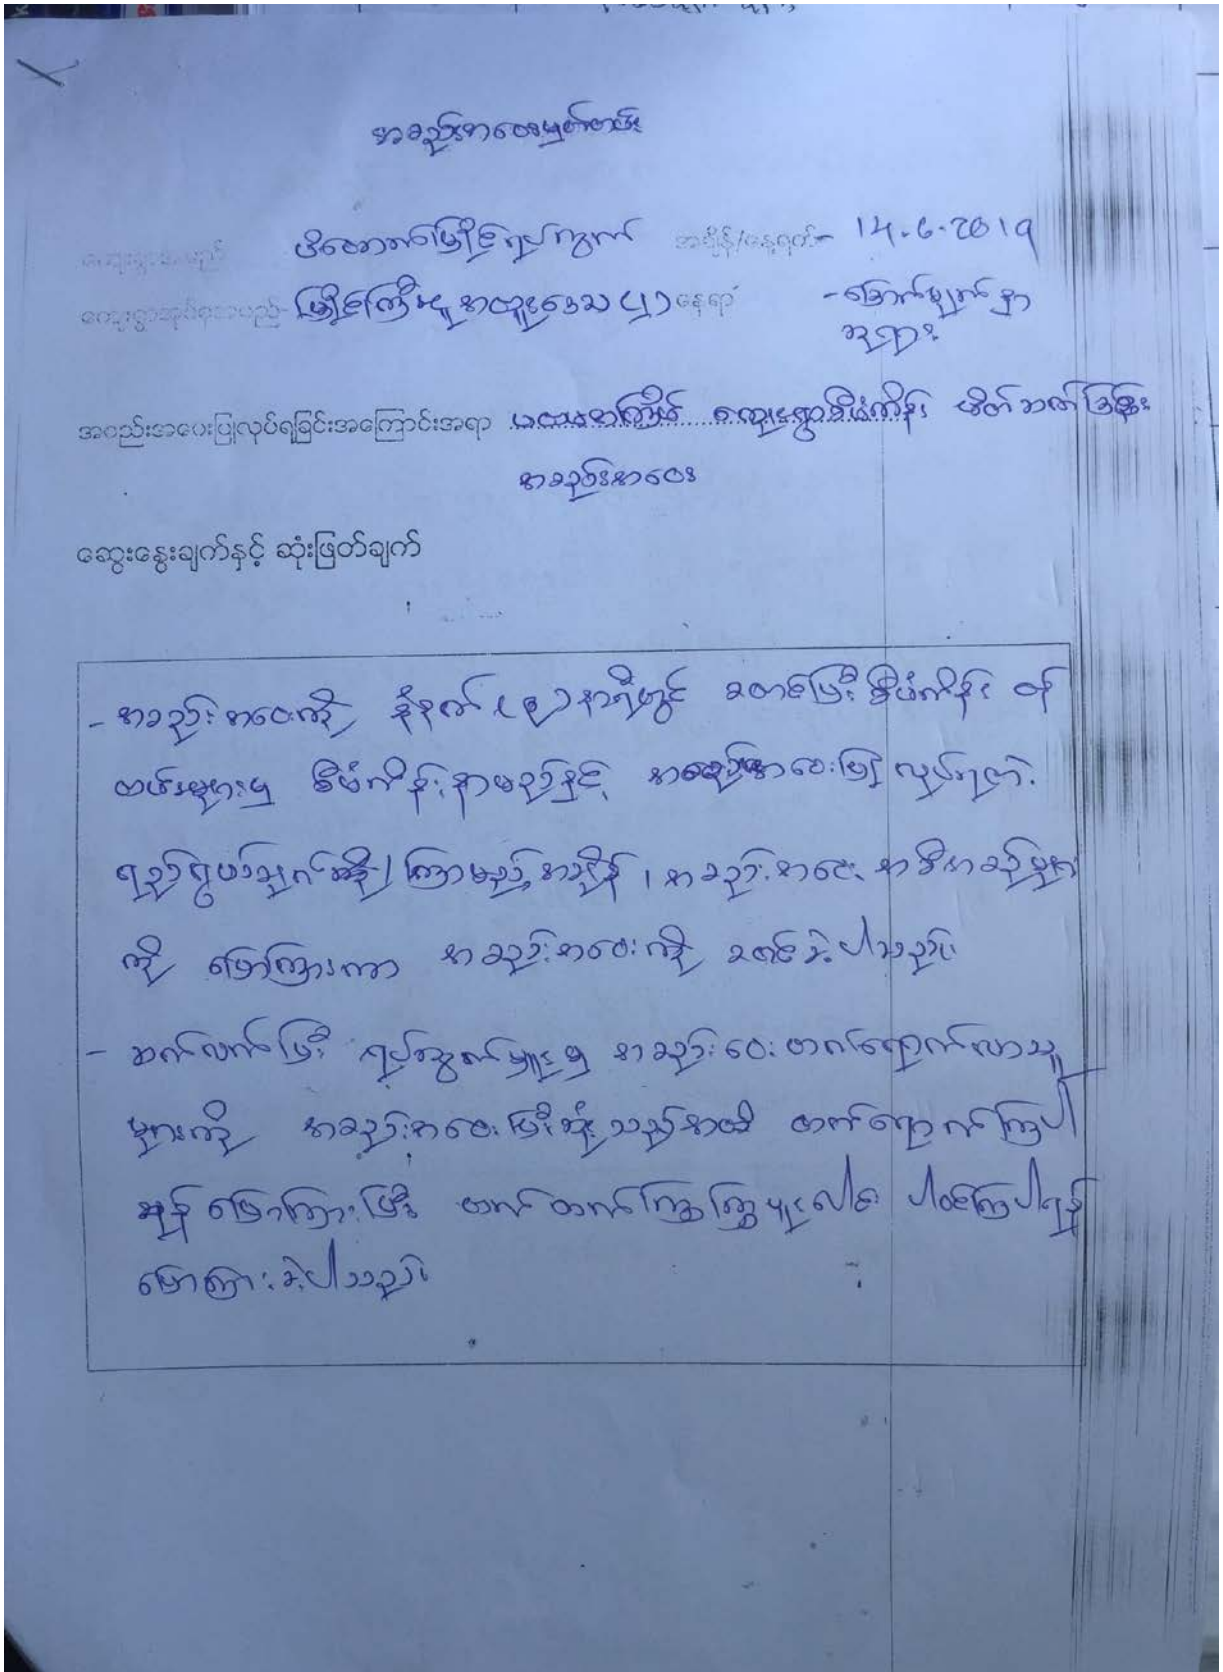 အစည်းအဝေးမှတ်တမ်း
ကျေးရွာအမည် ပိတောက်မြိုင်ရပ်ကွက် အချိန်/နေ့ရက်- 14.6.2019
ကျေးရွာအုပ်စုအမည်- မြိုင်ကြီးငူ အထူးဒေသ နေရာ - မြောက်မျက်နှာ
ဘုရား
အစည်းအဝေးပြုလုပ်ရခြင်းအကြောင်းအရာ ပထမအကြိမ် ကျေးရွာစီမံကိန်း မိတ်ဆက်ခြင်း
အစည်းအဝေး
ဆွေးနွေးချက်နှင့် ဆုံးဖြတ်ချက်
- အစည်းအဝေးကို နံနက် (၉) နာရီတွင် စတင်ပြီး စီမံကိန်း ဝန်
ထမ်းများမှ စီမံကိန်းနာမည်နှင့် အစည်းအဝေးပြုလုပ်ရတဲ့
ရည်ရွယ်ချက်၊ ကြာမည့်အချိန်၊ အစည်းအဝေး အစီအစဉ်များ
ကို ပြောကြားကာ အစည်းအဝေးကို စတင်ခဲ့ပါသည်။
- ဆက်လက်ပြီး ရပ်ကွက်မှူးမှ အစည်းဝေးတက်ရောက်လာသူ
များကို အစည်းအဝေးပြီးဆုံးသည်အထိ တက်ရောက်ကြပါ
ရန် ပြောကြားပြီး တက်တက်ကြွကြွပူးပေါင်း ပါဝင်ကြပါရန်
ပြောကြားခဲ့ပါသည်။